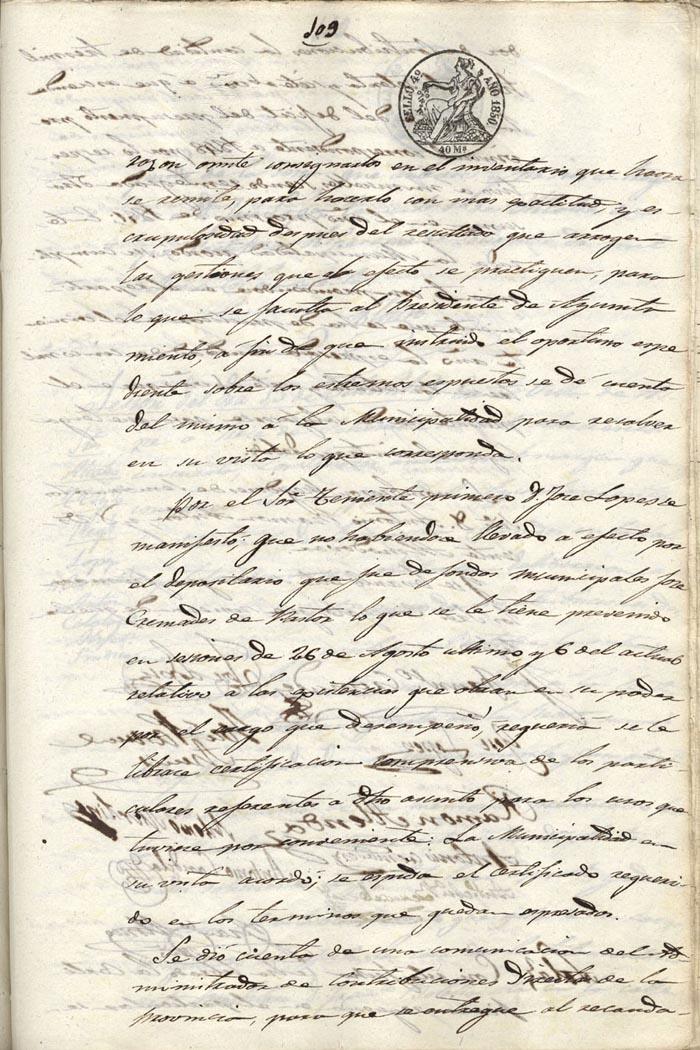 109
SELLO 4º AÑO 1850
40 Ms
razon omite consignarlos en el inventario que ahora
se remite, para hacerlo con mas exactitud, y es-
crupulosidad despues del resultado que arrogen
las gestiones que al efecto se practiquen, para
lo que se faculta al Presidente de Ayunta
miento, a fin de que instruido el oportuno espe
diente, sobre los estremos espuestos se dé cuenta
del mismo a la Municipalidad para resolver
en su vista lo que corresponda.
Por el Sor Teniente primero D. Jose Lopes se
manifestó; Que no habiendose llevado a efecto por
el depositario que fue de fondos municipales Jose
Cremades de Pastor lo que se le tiene prevenido
en sesiones de 26 de Agosto ultimo y 6 del actual
relativo a las existencias que obran en su poder
por el cargo que desempeñó, requeria se le
librase certificacion comprensiva de los parti-
culares referentes a dho asunto para los usos que
tuviese por conveniente: La Municipalidad en
su vista acordó; se espida el certificado requeri-
do en los terminos que quedan espresados.
Se dió cuenta de una comunicacion del Ad
ministrador de Contribuciones Directas de la
Provincia, para que se entregue al recauda-